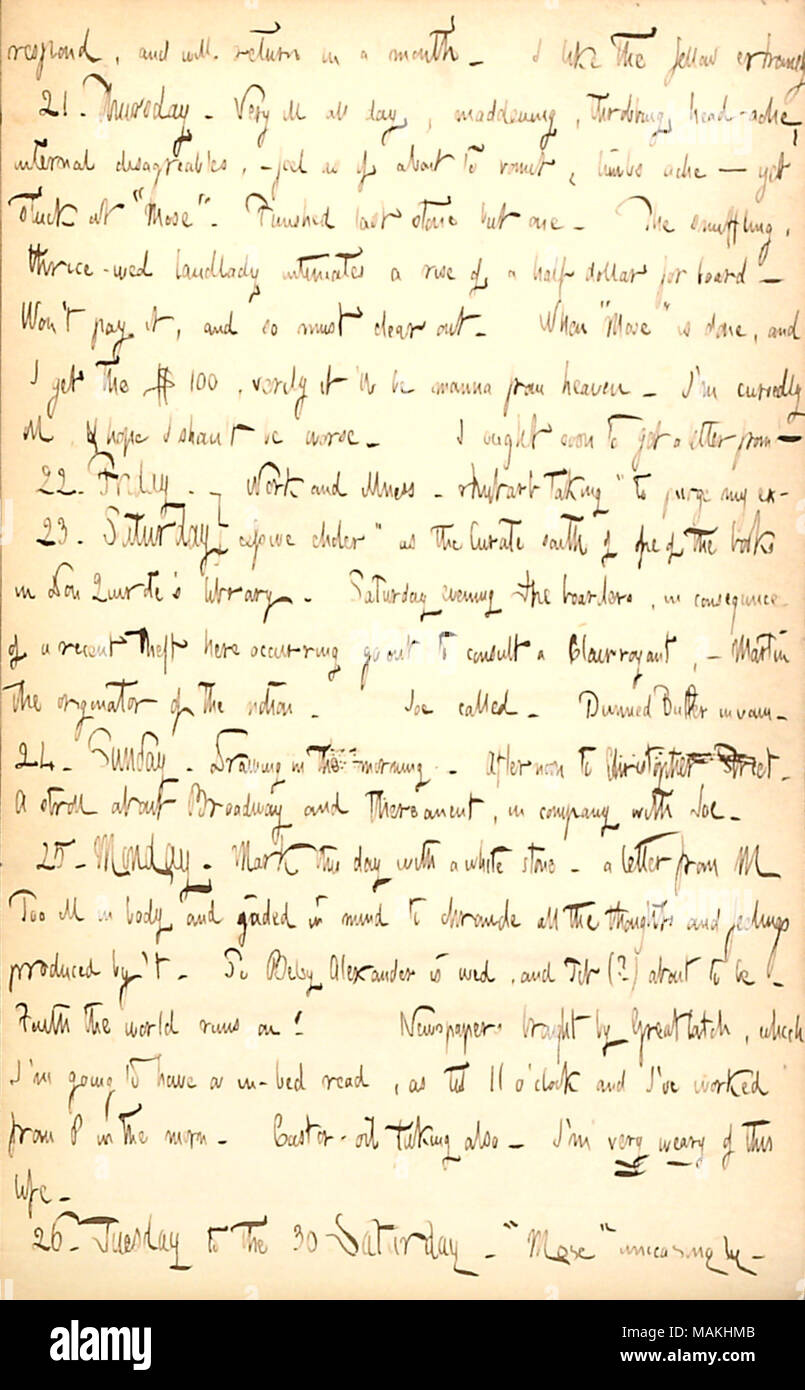 respond, and will return in a month_ I like the fellow extremely
21. Thursday_ Very ill all day, maddening, throbbing head-ache,
internal disagreables, - feel as if about to vomit, limbs ache — yet
stuck at "Mose". Finished last stone but one_ The snuffling,
thrice-wed landlady intimates a rise of a half dollar for board —
Won't pay it, and so must clear out_ When "Mose" is done, and
I get the $100, verily it'll be manna from heaven_ I'm cursedly
ill, & hope I shan't be worse_ I ought soon to get a letter from —
22_ Friday_ Work and illness_ rhubarb taking "to purge my ex-
23. Saturday cessive choler" as the Curate saith of one of the books
in Don Quixote's library_ Saturday evening the boarders, in consequence
of a recent theft here occurring go out to consult a Clairvoyant, — Martin
the originator of the notion_ Joe called_ Dunned Butler in vain_
24_ Sunday_ Drawing in the morning_ Afternoon to Christopher Street_
A stroll about Broadway and thereanent, in company with Joe_
25_ Monday_ Mark this day with a white stone_ a letter from M
Too ill in body and jaded in mind to chronicle all the thoughts and feelings
produced by't_ So Alexander is wed, and (?) about to be_
Faith the world runs on! Newspapers brought by Greatbatch, which
I'm going to have a in-bed read, as tis 11 o'clock and I've worked
from 8 in the morn_ Castor-oil taking also_ I'm very weary of this
life_
26_ Tuesday to the 30 Saturday_ "Mose" unceasingly_
alamy
Image ID: MAKHMB
www.alamy.com